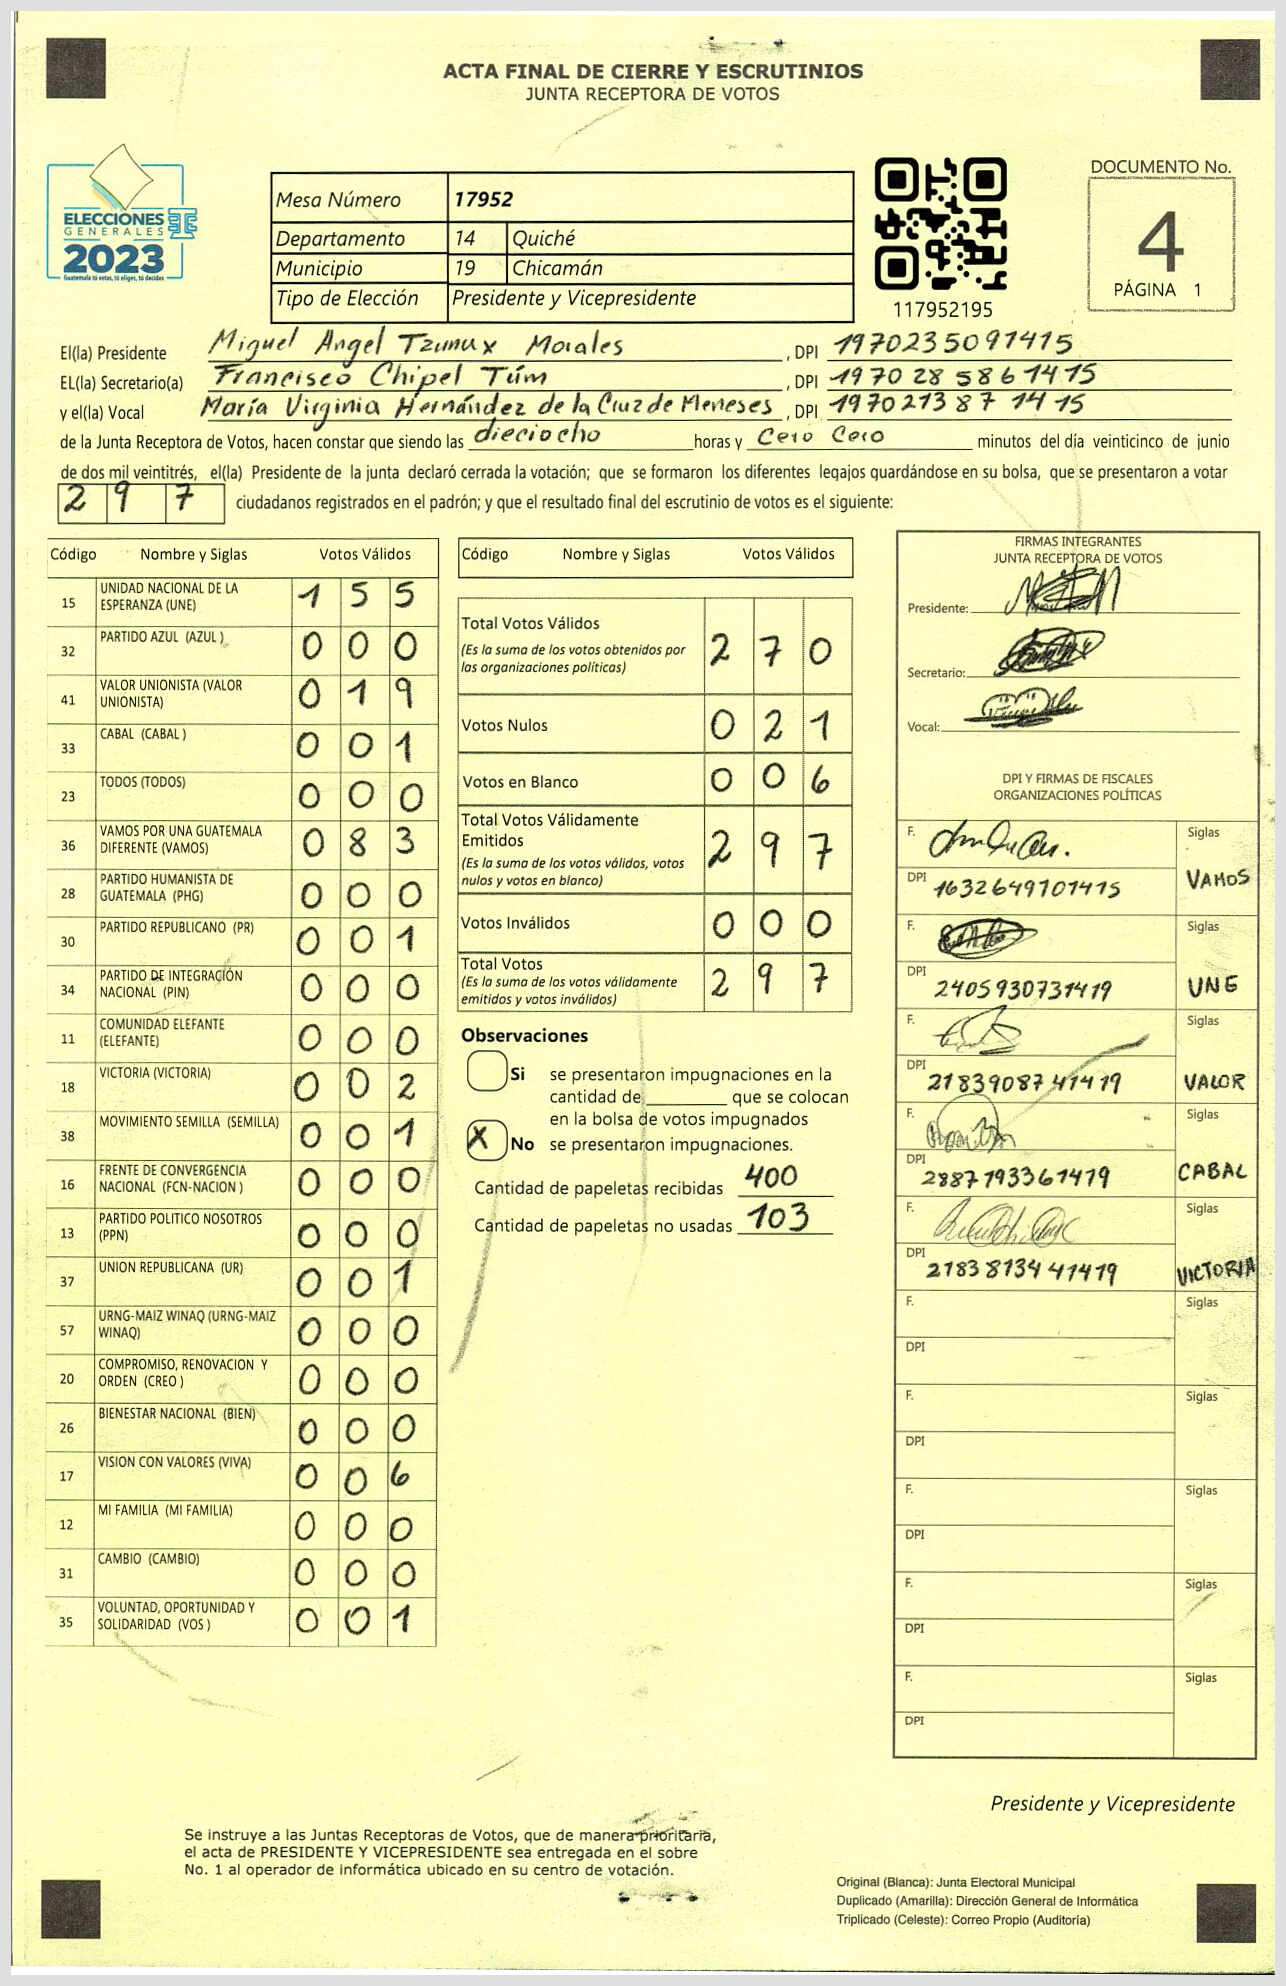 ACTA FINAL DE CIERRE Y ESCRUTINIOS
JUNTA RECEPTORA DE VOTOS
ELECCIONES
GENERALES
2023
Guatemala tú votas, tú eliges, tú decides
Mesa Número 17952
Departamento 14 Quiché
Municipio 19 Chicamán
Tipo de Elección Presidente y Vicepresidente
117952195
DOCUMENTO No.
4
PÁGINA 1
El(la) Presidente Miguel Angel Tzunux Morales , DPI 1970235091415
EL(la) Secretario(a) Francisco Chipel Túm , DPI 1970285861415
y el(la) Vocal María Virginia Hernández de la Cruz de Meneses , DPI 1970213871415
de la Junta Receptora de Votos, hacen constar que siendo las dieciocho horas y Cero Cero minutos del día veinticinco de junio
de dos mil veintitrés, el(la) Presidente de la junta declaró cerrada la votación; que se formaron los diferentes legajos guardándose en su bolsa, que se presentaron a votar
297 ciudadanos registrados en el padrón; y que el resultado final del escrutinio de votos es el siguiente:
Código Nombre y Siglas Votos Válidos
15 UNIDAD NACIONAL DE LA ESPERANZA (UNE) 1 5 5
32 PARTIDO AZUL (AZUL ) 0 0 0
41 VALOR UNIONISTA (VALOR UNIONISTA) 0 1 9
33 CABAL (CABAL ) 0 0 1
23 TODOS (TODOS) 0 0 0
36 VAMOS POR UNA GUATEMALA DIFERENTE (VAMOS) 0 8 3
28 PARTIDO HUMANISTA DE GUATEMALA (PHG) 0 0 0
30 PARTIDO REPUBLICANO (PR) 0 0 1
34 PARTIDO DE INTEGRACIÓN NACIONAL (PIN) 0 0 0
11 COMUNIDAD ELEFANTE (ELEFANTE) 0 0 0
18 VICTORIA (VICTORIA) 0 0 2
38 MOVIMIENTO SEMILLA (SEMILLA) 0 0 1
16 FRENTE DE CONVERGENCIA NACIONAL (FCN-NACION ) 0 0 0
13 PARTIDO POLITICO NOSOTROS (PPN) 0 0 0
37 UNION REPUBLICANA (UR) 0 0 1
57 URNG-MAIZ WINAQ (URNG-MAIZ WINAQ) 0 0 0
20 COMPROMISO, RENOVACION Y ORDEN (CREO ) 0 0 0
26 BIENESTAR NACIONAL (BIEN) 0 0 0
17 VISION CON VALORES (VIVA) 0 0 6
12 MI FAMILIA (MI FAMILIA) 0 0 0
31 CAMBIO (CAMBIO) 0 0 0
35 VOLUNTAD, OPORTUNIDAD Y SOLIDARIDAD (VOS ) 0 0 1
Código Nombre y Siglas Votos Válidos
Total Votos Válidos 2 7 0
(Es la suma de los votos obtenidos por
las organizaciones políticas)
Votos Nulos 0 2 1
Votos en Blanco 0 0 6
Total Votos Válidamente
Emitidos 2 9 7
(Es la suma de los votos válidos, votos
nulos y votos en blanco)
Votos Inválidos 0 0 0
Total Votos 2 9 7
(Es la suma de los votos válidamente
emitidos y votos inválidos)
Observaciones
Si se presentaron impugnaciones en la
cantidad de ________ que se colocan
en la bolsa de votos impugnados
X No se presentaron impugnaciones.
Cantidad de papeletas recibidas 400
Cantidad de papeletas no usadas 103
FIRMAS INTEGRANTES
JUNTA RECEPTORA DE VOTOS
Presidente:
Secretario:
Vocal:
DPI Y FIRMAS DE FISCALES
ORGANIZACIONES POLÍTICAS
F. Siglas
DPI 1632649701415 VAMOS
F. Siglas
DPI 2405930731419 UNE
F. Siglas
DPI 2183908741419 VALOR
F. Siglas
DPI 2887193361419 CABAL
F. Siglas
DPI 2183813441419 VICTORIA
F. Siglas
DPI
F. Siglas
DPI
F. Siglas
DPI
F. Siglas
DPI
F. Siglas
DPI
Presidente y Vicepresidente
Se instruye a las Juntas Receptoras de Votos, que de manera prioritaria,
el acta de PRESIDENTE Y VICEPRESIDENTE sea entregada en el sobre
No. 1 al operador de informática ubicado en su centro de votación.
Original (Blanca): Junta Electoral Municipal
Duplicado (Amarilla): Dirección General de Informática
Triplicado (Celeste): Correo Propio (Auditoría)